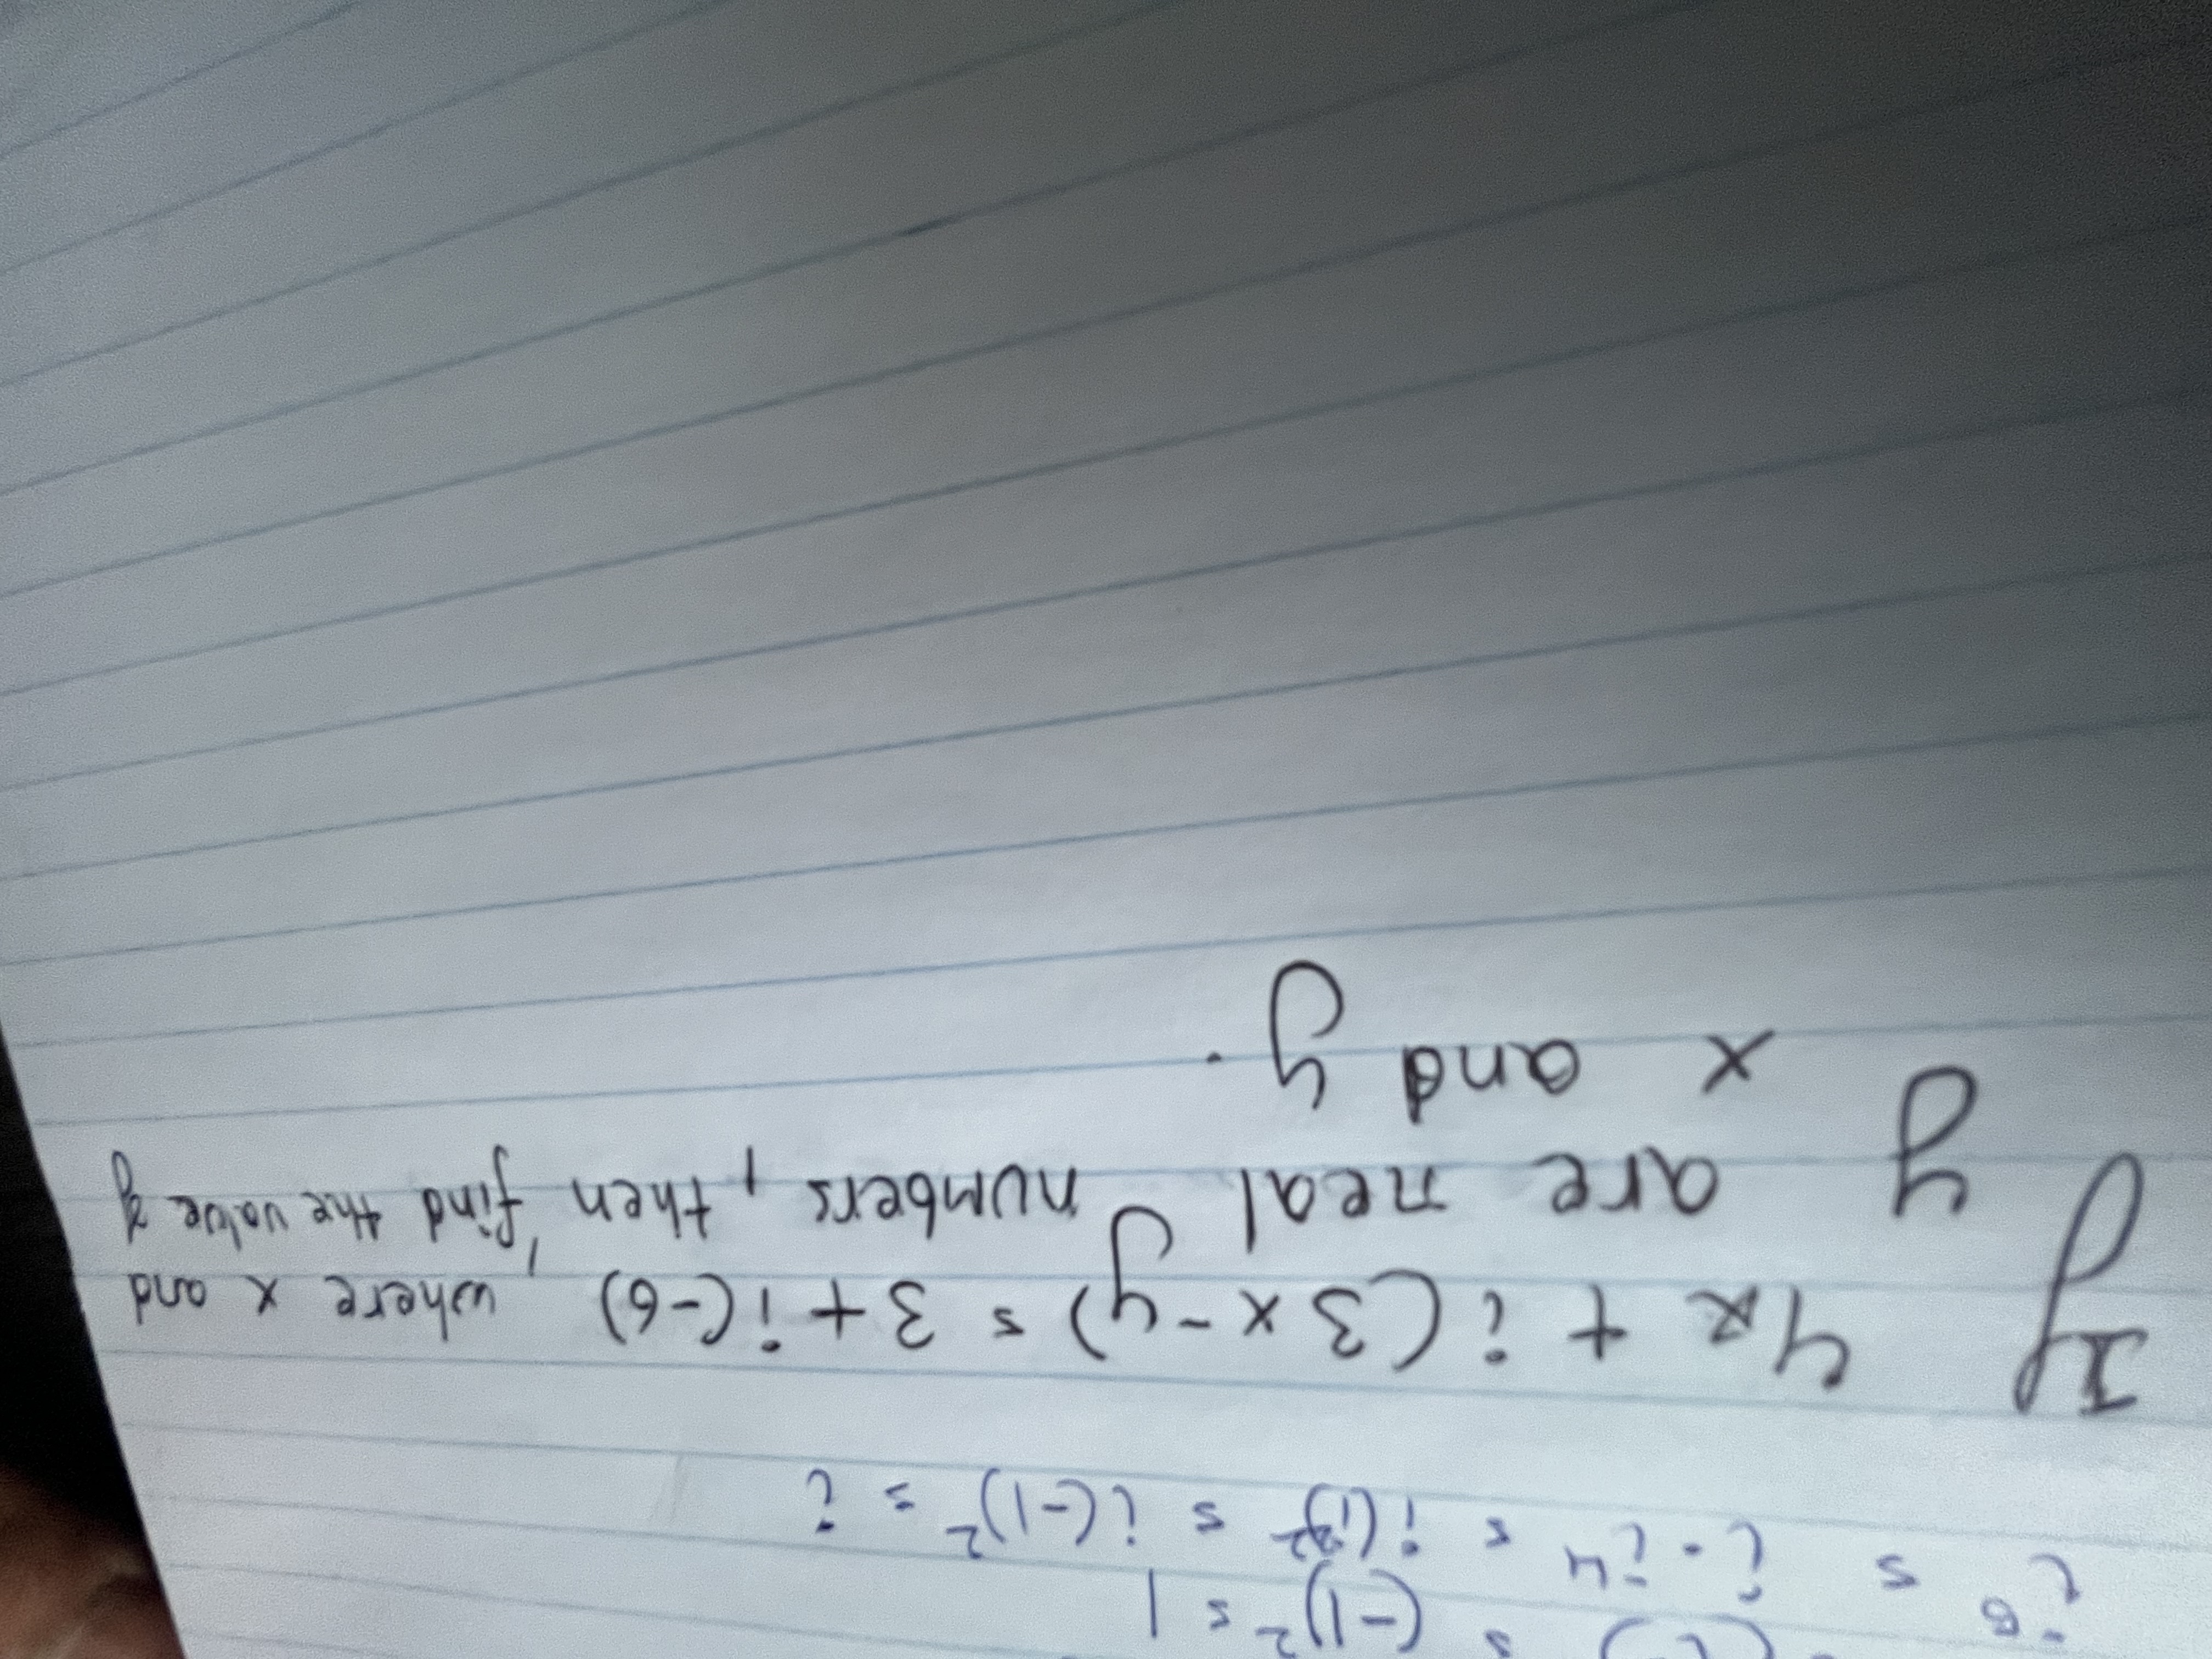 = (-1)² = 1
i⁵ = i · i⁴ = i(-1)² = i
If 4x + i(3x-y) = 3 + i(-6), where x and
y are real numbers, then, find the value of
x and y.